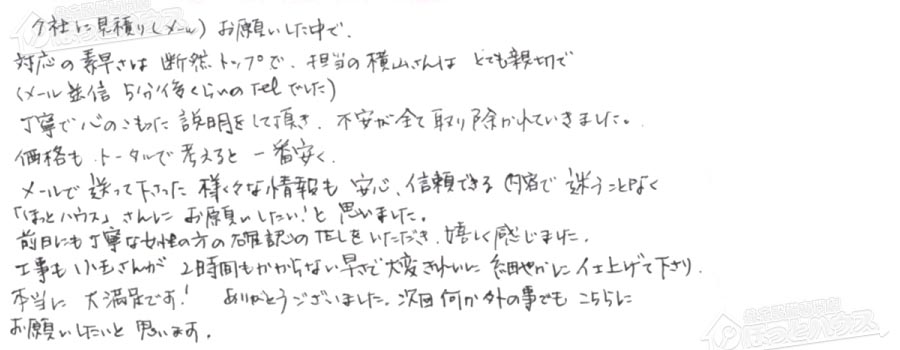 7社に見積り(メール)お願いした中で、
対応の素早さは断然トップで、担当の横山さんはとても親切で
(メール送信 5分後くらいのTelでした)
丁寧で心のこもった説明をして頂き、不安が全て取り除かれていきました。
価格も、トータルで考えると一番安く、
メールで送って下さった様々な情報も安心、信頼できる内容で迷うことなく
「ほっとハウス」さんにお願いしたい!と思いました。
前日にも丁寧な女性の方の確認のTELをいただき、嬉しく感じました。
工事も小玉さんが2時間もかからない早さで大変きれいに細やかに仕上げて下さり、
本当に大満足です! ありがとうございました。次回何か外の事でもこちらに
お願いしたいと思います。
ほっとハウス
ほっとハウス